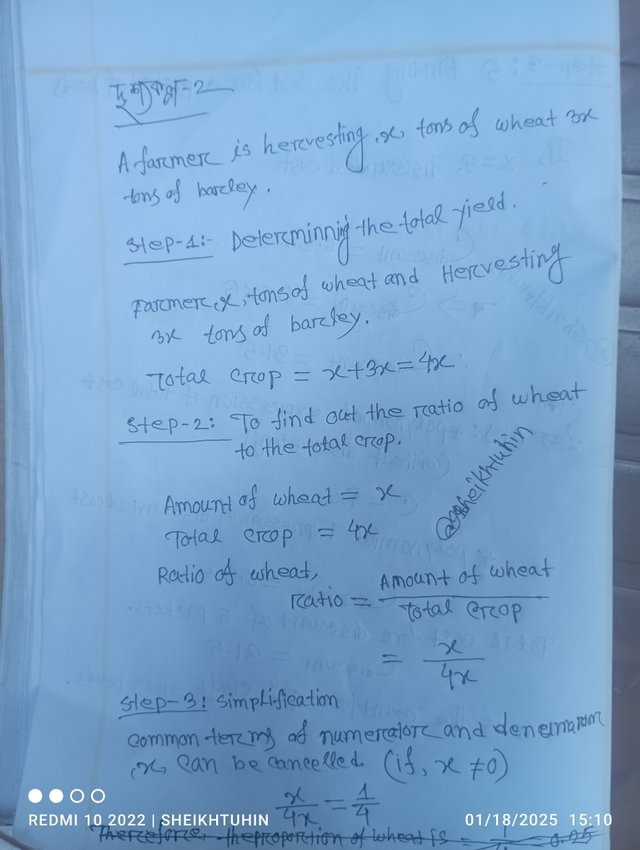 দৃশ্যকল্প-2
A farmer is hervesting, x, tons of wheat 3x
tons of barley.
Step-1:- Determinnig the total yield.
Farmer, x, tons of wheat and Hervesting
3x tons of barley.
Total crop = x+3x=4x
Step-2: To find out the ratio of wheat
to the total crop.
Amount of wheat = x
Total crop = 4x
@sheikhtuhin
Ratio of wheat,
Ratio = Amount of wheat / Total crop
= x / 4x
Step-3: Simplification
common terms of numerator and
x, can be cancelled (if, x ≠ 0)
x / 4x = 1 / 4
Therefore, the proportion of wheat is = 1 / 4 = 0.25
REDMI 10 2022 | SHEIKHTUHIN
01/18/2025 15:10